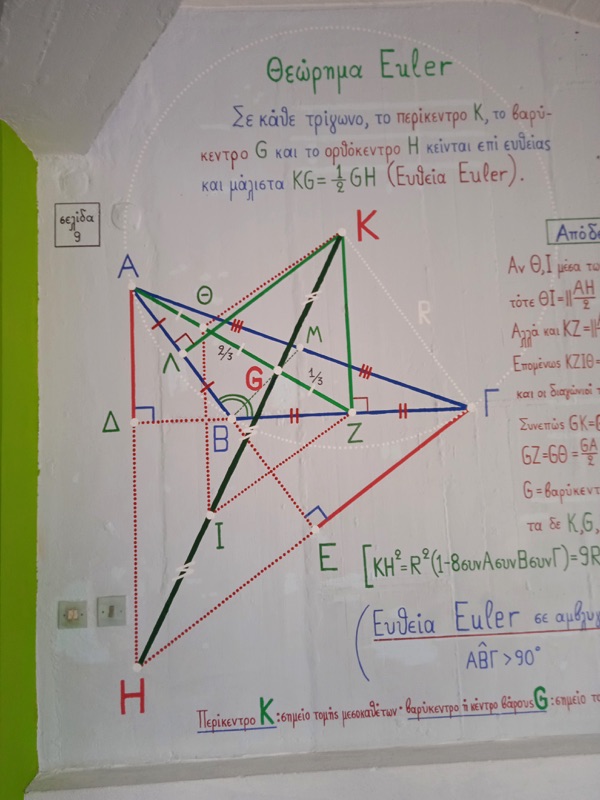 Θεώρημα Euler
Σε κάθε τρίγωνο, το περίκεντρο Κ, το βαρύ-
κεντρο G και το ορθόκεντρο Η κείνται επί ευθείας
και μάλιστα KG=½GH (Ευθεία Euler).
σελίδα
9
Κ
Απόδε
Α
Θ
Αν Θ,Ι μέσα τω
τότε ΘΙ=||ΑΗ/2
R
Μ
Λ
2/3
Αλλά και ΚΖ=||
G
1/3
Επομένως ΚΖΙΘ=
και οι διαγώνιοί τ
Γ
Δ
Β
Ζ
Συνεπώς GK=G
GZ=GΘ=GA/2
G=βαρύκεν
Ι
τα δε Κ,G,
Ε
[ΚΗ²=R²(1-8συνΑσυνΒσυνΓ)=9R
(Ευθεία Euler σε αμβλυγ
ΑΒ̂Γ>90°
Η
Περίκεντρο Κ:σημείο τομής μεσοκαθέτων·βαρύκεντρο ή κέντρο βάρους G:σημείο το